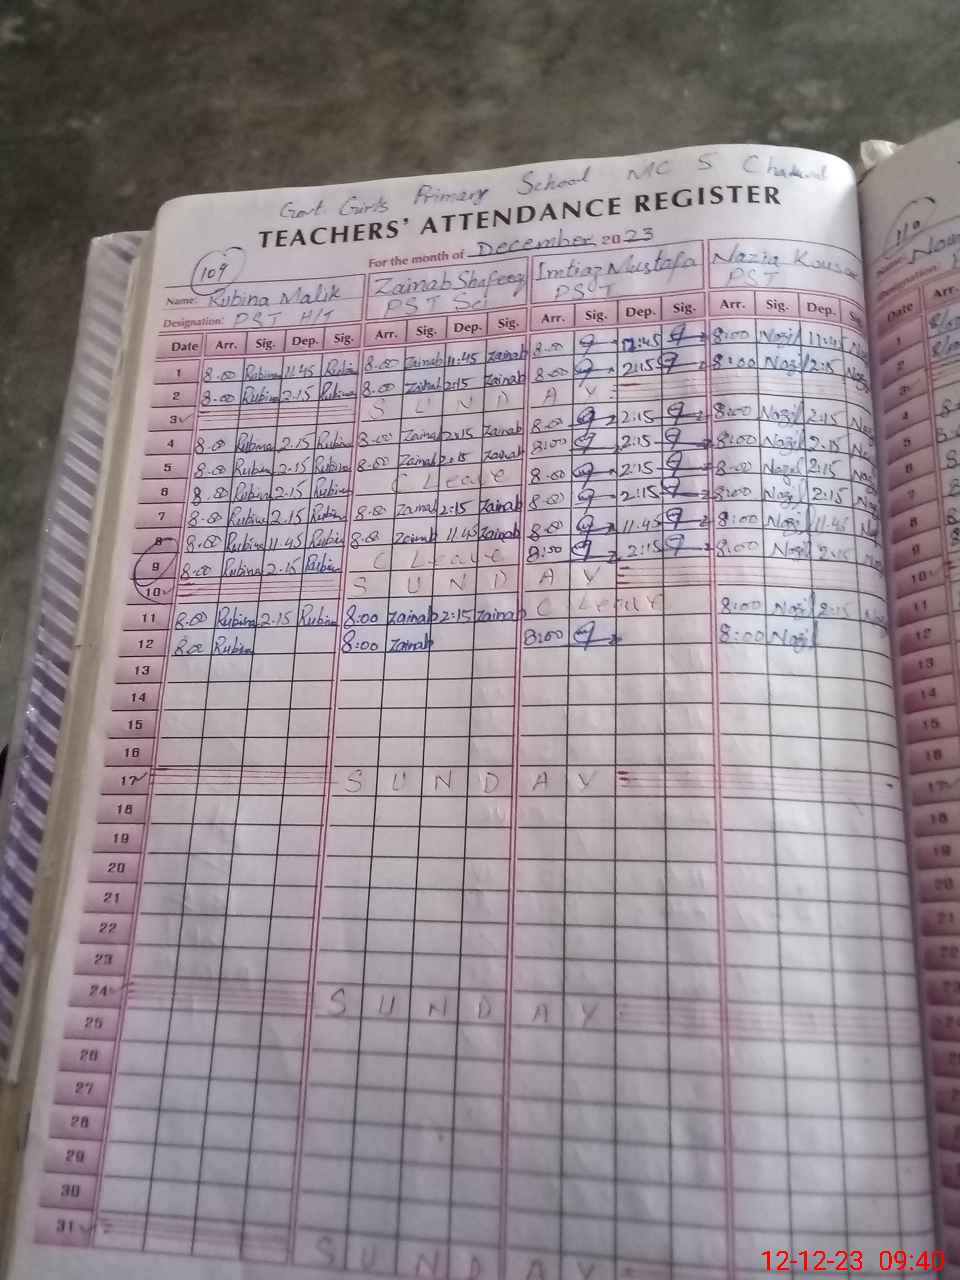 Govt. Girls Primary School MC 5 Chakwal
TEACHERS' ATTENDANCE REGISTER
For the month of December 2023
109
Name: Rubina Malik Zainab Shafeeq Imtiaz Mustafa Nazia Kousar
Designation: PST H/T PST PST PST
Date Arr. Sig. Dep. Sig. Arr. Sig. Dep. Sig. Arr. Sig. Dep. Sig. Arr. Sig. Dep. Sig.
1 8.00 Rubina 11.45 Rubina 8.00 Zainab 11:45 Zainab 8.00 8:00 Nazi 11:45
2 8.00 Rubina 2.15 Rubina 8.00 Zainab 2:15 Zainab 8.00 2:15 8:00 Nazi 2:15
3 SUNDAY
4 8.00 Rubina 2.15 Rubina 8.00 Zainab 2:15 Zainab 8.00 2:15 8:00 Nazi 2:15
5 8.00 Rubina 2.15 Rubina 8.00 Zainab 2:15 Zainab 8:00 2:15 8:00 Nazi 2:15
6 8.00 Rubina 2.15 Rubina C Leave 8.00 2:15 8:00 Nazi 2:15
7 8.00 Rubina 2.15 Rubina 8.00 Zainab 2:15 Zainab 8:00 2:15 8:00 Nazi 2:15
8 8.00 Rubina 11.45 Rubina 8.00 Zainab 11.45 Zainab 8.00 11.45 8:00 Nazi 11.45
9 8.00 Rubina 2.15 Rubina C Leave 8:00 2:15 8:00 Nazi 2:15
10 SUNDAY
11 8.00 Rubina 2.15 Rubina 8:00 Zainab 2:15 Zainab C Leave 8:00 Nazi 2:15
12 8.00 Rubina 8:00 Zainab 8:00 8:00 Nazi
13
14
15
16
17 SUNDAY
18
19
20
21
22
23
24 SUNDAY
25
26
27
28
29
30
31 SUNDAY
110
Name:
Designation:
Date Arr.
1
2
3
4
5
6
7
8
9
10
11
12
13
14
15
16
17
18
19
20
21
22
23
24
12-12-23 09:40